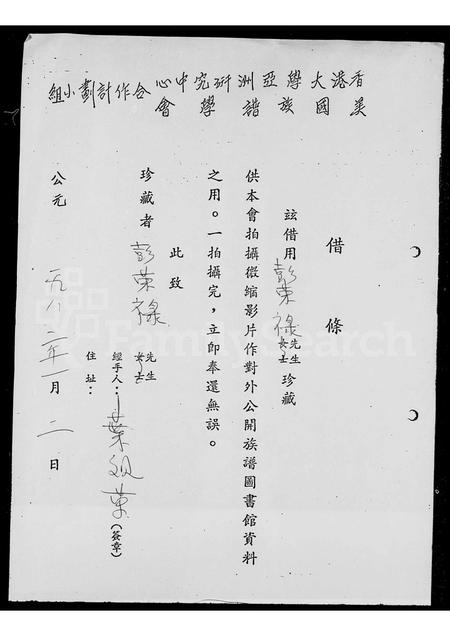 香港大學亞洲研究中心
美國族譜學會
合作計劃小組
借條
茲借用彭荣禄先生女士珍藏
供本會拍攝微縮影片作對外公開族譜圖書館資料
之用。一拍攝完，立即奉還無誤。
此致
珍藏者 彭荣禄 先生女士
經手人：葉 (簽章)
住址：
公元一九八二年一月二日
FamilySearch